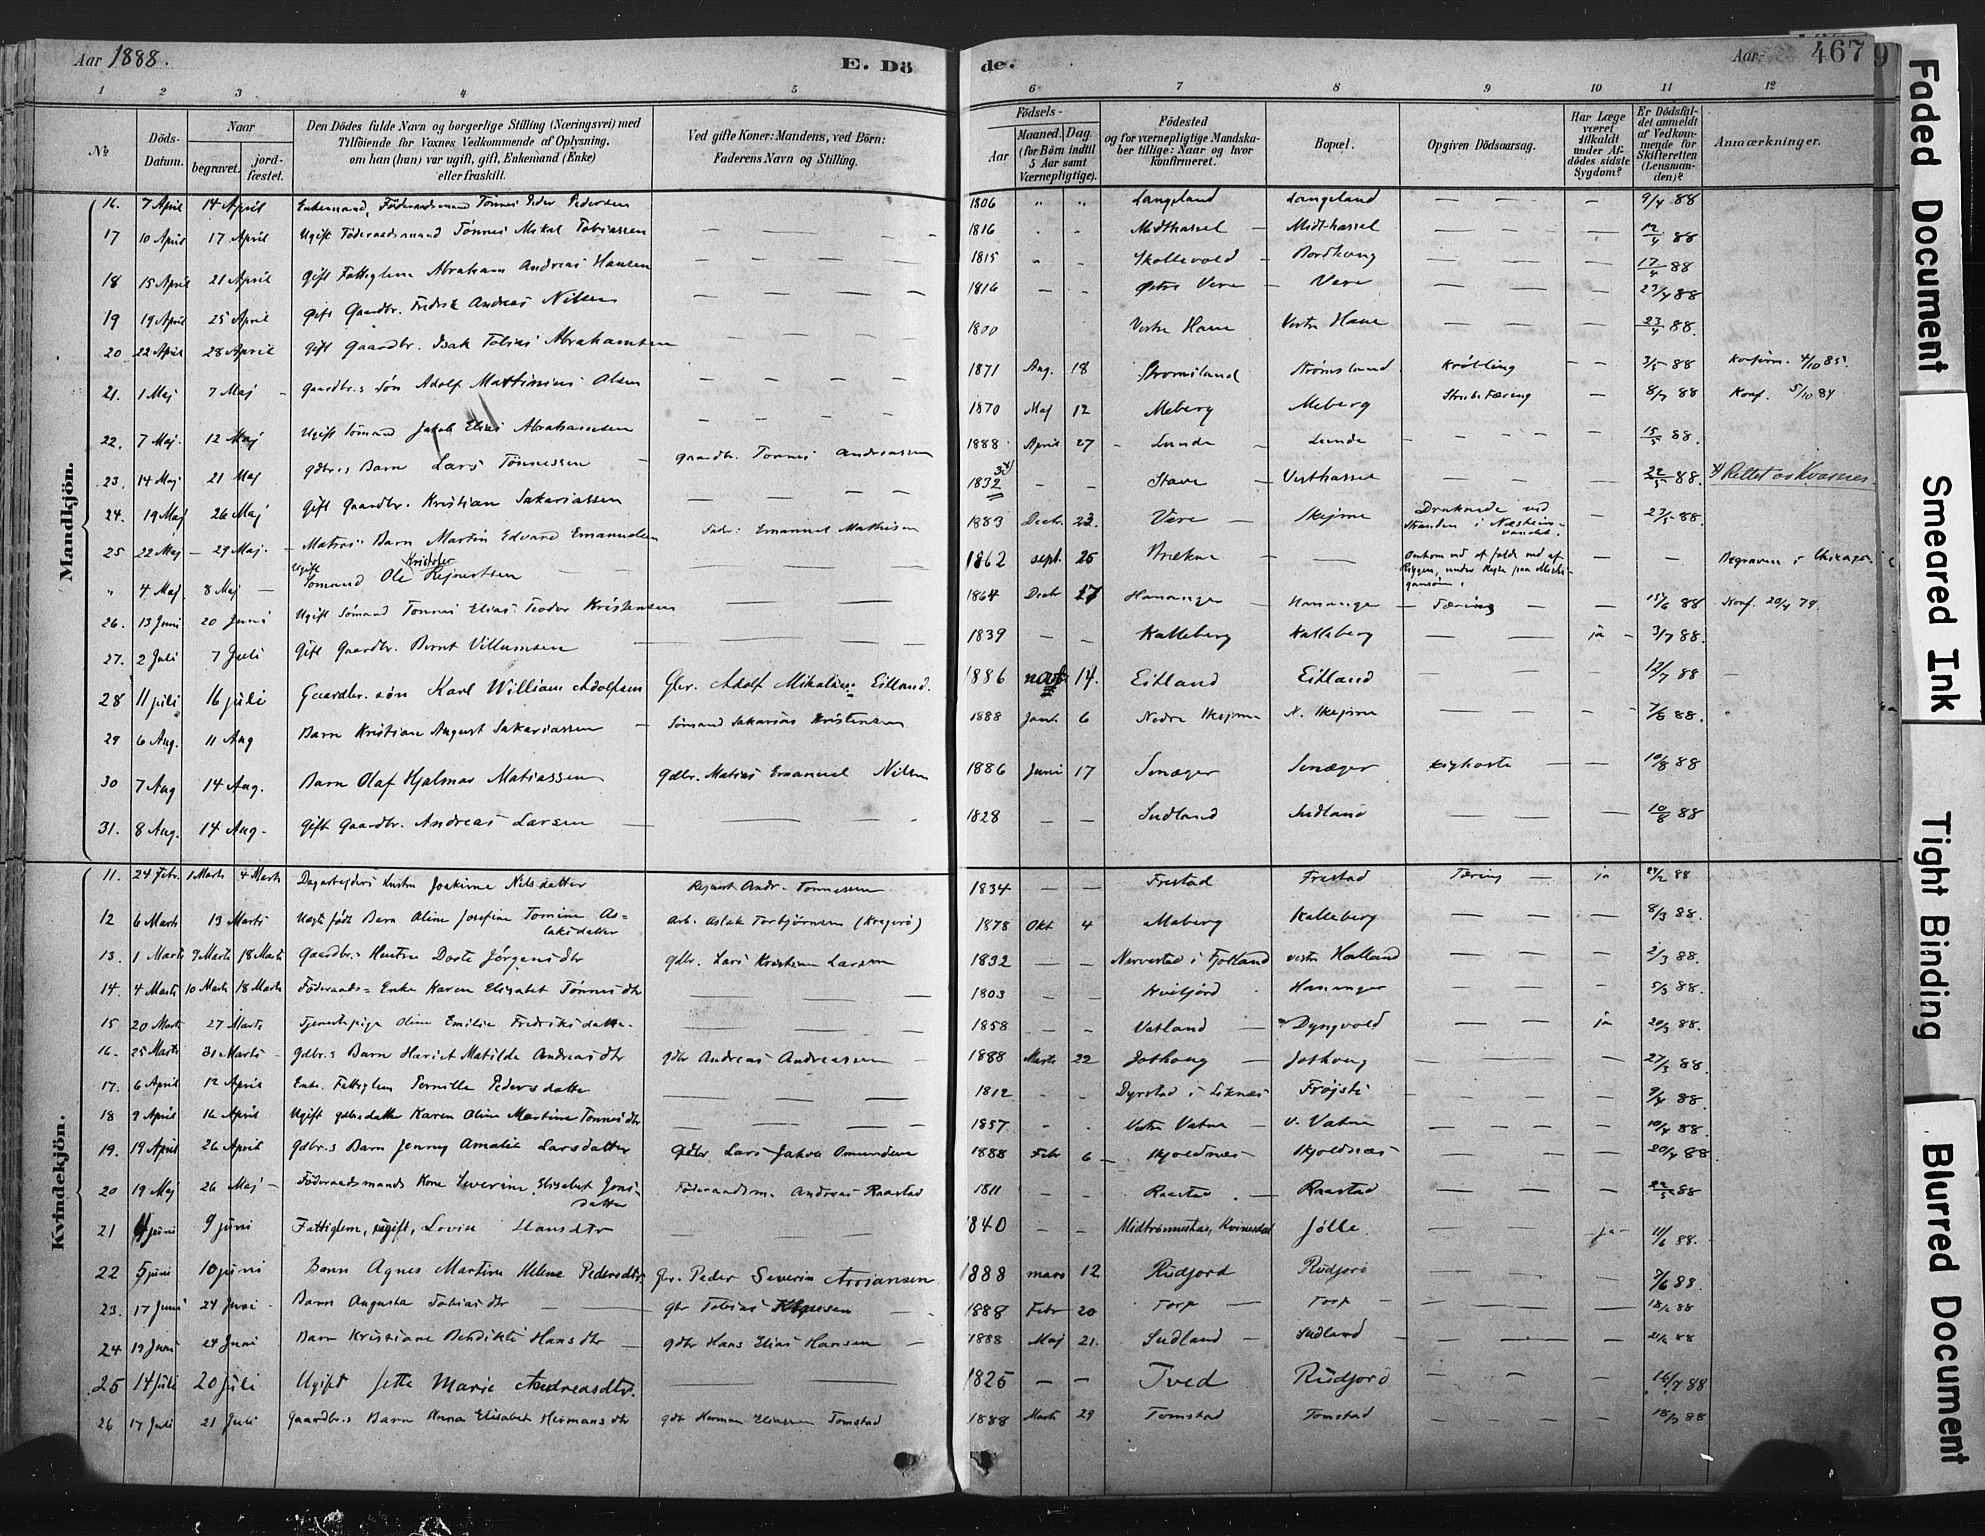 Aar 1888.
E. Dö de.
Aar
467
9
1 2 3 4 5 6 7 8 9 10 11 12
№
Döds-Datum.
Naar
begravet.
jordfæstet.
Den Dödes fulde Navn og borgerlige Stilling (Næringsvei) med
Tilföiende for Voxnes Vedkommende af Oplysning,
om han (hun) var ugift, gift, Enkemand (Enke)
eller fraskilt.
Ved gifte Koner: Mandens, ved Börn:
Faderens Navn og Stilling.
Födsels-
Aar
Maaned. Dag.
(for Börn indtil
5 Aar samt
Værnepligtige).
Födested
og for værnepligtige Mandska-
ber tillige: Naar og hvor
Konfirmeret.
Bopæl.
Opgiven Dödsaarsag.
Har Læge
været
tilkaldt
under Af-
dödes sidste
Sygdom?
Er Dödsfal-
det anmeldt
af Vedkom-
mende for
Skifteretten
(Lensman-
den)?
Anmærkninger.
Mandkjön.
16. 7 April 14 April Enkemand, Föderaadsmand Tönnes Peder Pedersen 1806 " " Langeland Langeland — — — 9/4 88
17 10 April 17 April Ugift Föderaadsmand Tönnes Mikal Tobiassen — — — 1816 Midthassel — Midthassel — — — 12/4 88
18 15 April 21 April Gift Fattiglem Abraham Andreas Hansen — — — 1815 Skollevold — Bordhoug — — — 17/4 88
19 19 April 25 April Gift Gaardbr. Fredrik Andreas Nilsen — — — 1816 — — Østre Vere — Vere — — — 23/4 88
20 22 April 28 April Gift Gaardbr. Isak Tobias Abrahamsen — — — 1800 Vestre Hane Vestre Hane — — — 23/4 88.
21. 1 Maj 7 Maj — Gaardbr.s Sön Adolf Mattinius Olsen — — — 1871 Aug. 18 Stromsland Strömsland Kröbling — — 3/5 88 Konfirm. 4/10 85.
22. 7 Maj. 12 Maj Ugift Sömand Jakob Elias Abrahamsen — — 1870 Maj 12 Meberg Meberg Strube Tæring — 8/5 88 Konf. 5/10 84
23. 14 Maj 21 Maj gdbr.s Barn Lars Tönnessen — Gaardbr. Tonnes Andreassen 1888 April 27 — Lunde — Lunde — — — — 15/5 88.
24. 19 Maj 26 Maj Gift Gaardbr. Kristian Sakariassen — — — 1832 — — Stave — Vesthassel — — — 22/5 88. Rettet av Kvasnes.
25 22 Maj — 29 Maj. — Matros Barn Martin Edvard Emanuelsen Fader: Emanuel Mathisen 1883 Decbr. 23. Vere — Skejme Druknede ved Stranden i Næsheim-vandet. — 23/5 88.
" 4 Maj 8 Maj — Ugift Sömand Ole Kristofer Rejnertsen — — — 1862 Sept. 25 Brekne — — Omkom ved at falde ned af Riggen, under Rejse paa Michigansöen. — — Begraven i Chicago.
26. 13 Juni 20 Juni Ugift Sömand Tonnes Elias Teodor Kristensen — — 1864 Decbr 17 Hananger — Hananger — Tæring — — 15/6 88 Konf. 20/4 79.
27. 2 Juli 7 Juli Gift Gaardbr. Bernt Villumsen — — 1839 — — Kalleberg Kalleberg — — ja — 3/7 88.
28 11 juli 16 juli Gaardbr. sön Karl William Adolfsen Gbr. Adolf Mikalsen Eitland. 1886 novb 14. Eitland Eitland — — — 12/7 88 —
29 6 Aug. 11 Aug Barn Kristian August Sakariassen — Sömand Sakarias Kristensen 1888 Jan. 6 Nedre Skejme N. Skejme — — — — 7/8 88.
30 7 Aug 14 Aug. Barn Olaf Hjalmar Matiassen Gdbr. Matias Emanuel Nilsen 1886 Juni 17 Snæger Snæger Kighoste — — 10/8 88
31. 8 Aug. 14 Aug. Gift Gaardbr. Andreas Larsen — — — 1828 — — Sudland Sudland — — — 10/8 88
Kvindekjön.
11. 24 Febr. 1 Marts 4 Marts Dagarbejders Kustru Joakime Nilsdatter Rejnert Andr. Tonnessen 1834 — — Frestad Frestad Tæring — ja 24/2 88
12 6 Marts 13 Marts Uægte födt Barn Oline Josefine Tomine Aslaksdatter Arb. Aslak Torbjörnsen (Kragerö) 1878 Okt 4 Maberg Kalleberg — — — 8/3 88.
13. 1 Marts 9 Marts 18 Marts Gaardbr.s Hustru Dorte Jörgensdtr gdbr. Lars Kristian Larsen 1832 — — Nervestad i Fjotland vestre Halland — — — 2/3 88.
14. 4 Marts 10 Marts 18 Marts Föderaads- Enke Karen Elisabet Tönnesdtr — — — 1803 — — Kvibjörd Hananger — — — 5/3 88.
15 20 Marts 27 Marts Tjenestepige Oline Emilie Fredriksdatter — — — 1858 — — Vatland — Dyngvold — — ja 20/3 88.
16. 25 Marts 31 Marts gdbr.s Barn Hariet Matilde Andreasdtr gdbr Andreas Andreassen — 1888 Marts 22 Jothoug — Jothoug — — — 27/3 88.
17. 6 April 12 April Enke Fattiglem Pernille Pedersdatter — — — 1812 — — Dyrstad i Liknes Fröjsti — — — 9/4 88.
18 9 April 16 April Ugift gdbrsdatter Karen Oline Martine Tonnesdtr — — — 1857 Vestre Vatne — V. Vatne — — — 10/4 88.
19. 19 April 26 April gdbr.s Barn Jenny Amalie Larsdatter Gdbr Lars Jakob Omundsen 1888 Febr 6 — Skjoldnæs — Skjoldnæs — — — 20/4 88.
20 19 Maj 26 Maj — Föderaadsmands Kone Severine Elisabet Jonsdatter Föderaadsm. Andreas Raastad 1811 — — Raastad — Raastad — — — 22/5 88
21 4 juni 9 juni Fattiglem, ugift, Lovise Hansdtr — — — 1840 — — Midtrönnestas, Kvinesdal Jölle — — ja — 11/6 88.
22 5 juni 10 juni Barn Agnes Martine Helene Pedersdtr Gbr. Peder Severin Arojansen 1888 mars 12 Rudjord Rudjord — — — 7/6 88.
23. 17 Juni 24 Juni — Barn Augusta Tobiasdtr — — gbr Tobias — 1888 Febr 20 — Torp — Torp — — — — 18/6 88
24 19 Juni 24 Juni Barn Kristiane Bendikte Hansdtr — gdbr Hans Elias Hansen — 1888 Maj 21. Sudland — Sudland — — — — 21/6 88
25 14 Juli 20 Juli Ugift Jette Marie Andreasdtr. — — 1825 — — Tved Rudjord — — — 16/7 88
26 17 Juli 21 Juli Gaardbr.s Barn Anna Elisabet Hermansdtr gdbr Herman Eliassen Tomstad 1888 Marts 29 Tomstad Tomstad — — — 18/7 88
Faded Document
Smeared Ink
Tight Binding
Blurred Document